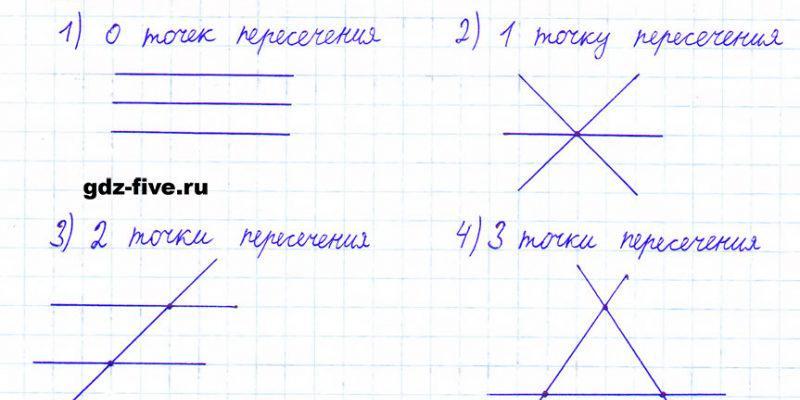 1) 0 точек пересечения
2) 1 точку пересечения
gdz-five.ru
3) 2 точки пересечения
4) 3 точки пересечения